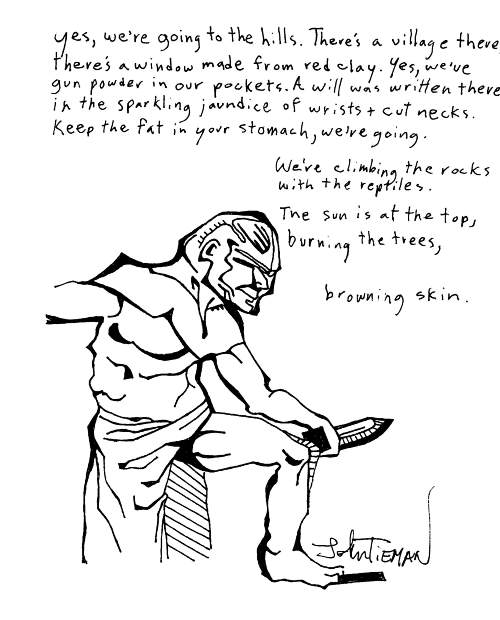 yes, we're going to the hills. There's a village there,
there's a window made from red clay. Yes, we've
gun powder in our pockets. A will was written there
in the sparkling jaundice of wrists + cut necks.
Keep the fat in your stomach, we're going.
We're climbing the rocks
with the reptiles.
The sun is at the top,
burning the trees,
browning skin.
John Tieman